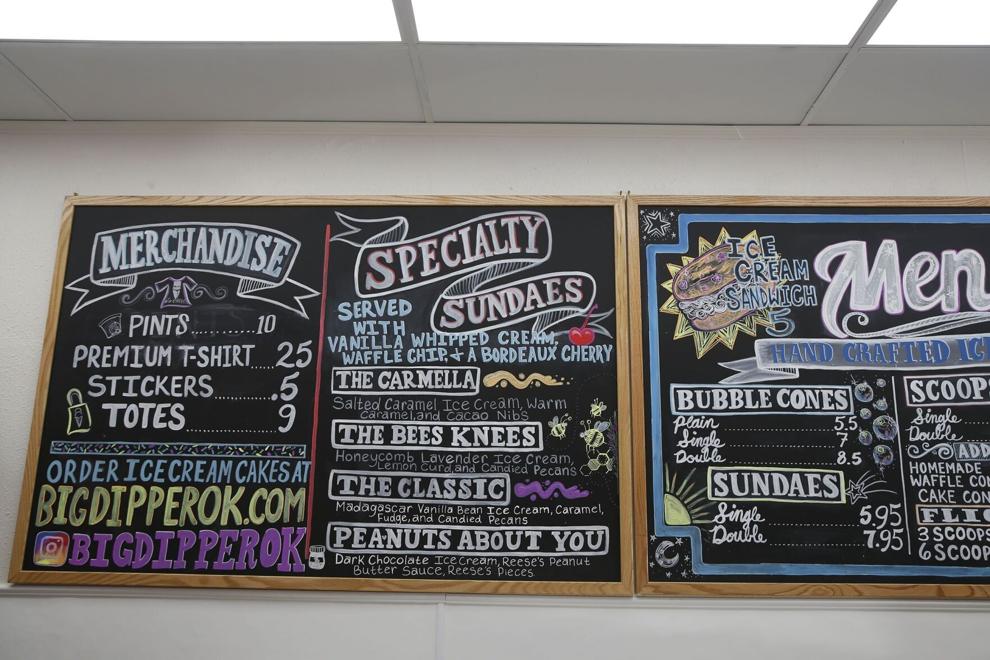 MERCHANDISE
PINTS..........10
PREMIUM T-SHIRT....25
STICKERS ........... .5
TOTES ........... 9
ORDER ICE CREAM CAKES AT
BIGDIPPEROK.COM
BIGDIPPEROK
SPECIALTY
SUNDAES
SERVED
WITH
VANILLA WHIPPED CREAM,
WAFFLE CHIP, + A BORDEAUX CHERRY
THE CARMELLA
Salted Caramel Ice Cream, Warm
Caramel, and Cacao Nibs
THE BEES KNEES
Honeycomb Lavender Ice Cream,
Lemon Curd, and Candied Pecans
THE CLASSIC
Madagascar Vanilla Bean Ice Cream, Caramel,
Fudge, and Candied Pecans
PEANUTS ABOUT YOU
Dark Chocolate Ice Cream, Reese's Peanut
Butter Sauce, Reese's Pieces
ICE
CREAM
SANDWICH
5
Men
HAND CRAFTED IC
BUBBLE CONES
Plain ........... 5.5
Single ........... 7
Double ........... 8.5
SUNDAES
Single ........... 5.95
Double ........... 7.95
SCOOPS
Single
Double
ADD
HOMEMADE
WAFFLE CON
CAKE CON
FLIG
3 SCOOPS
6 SCOOP